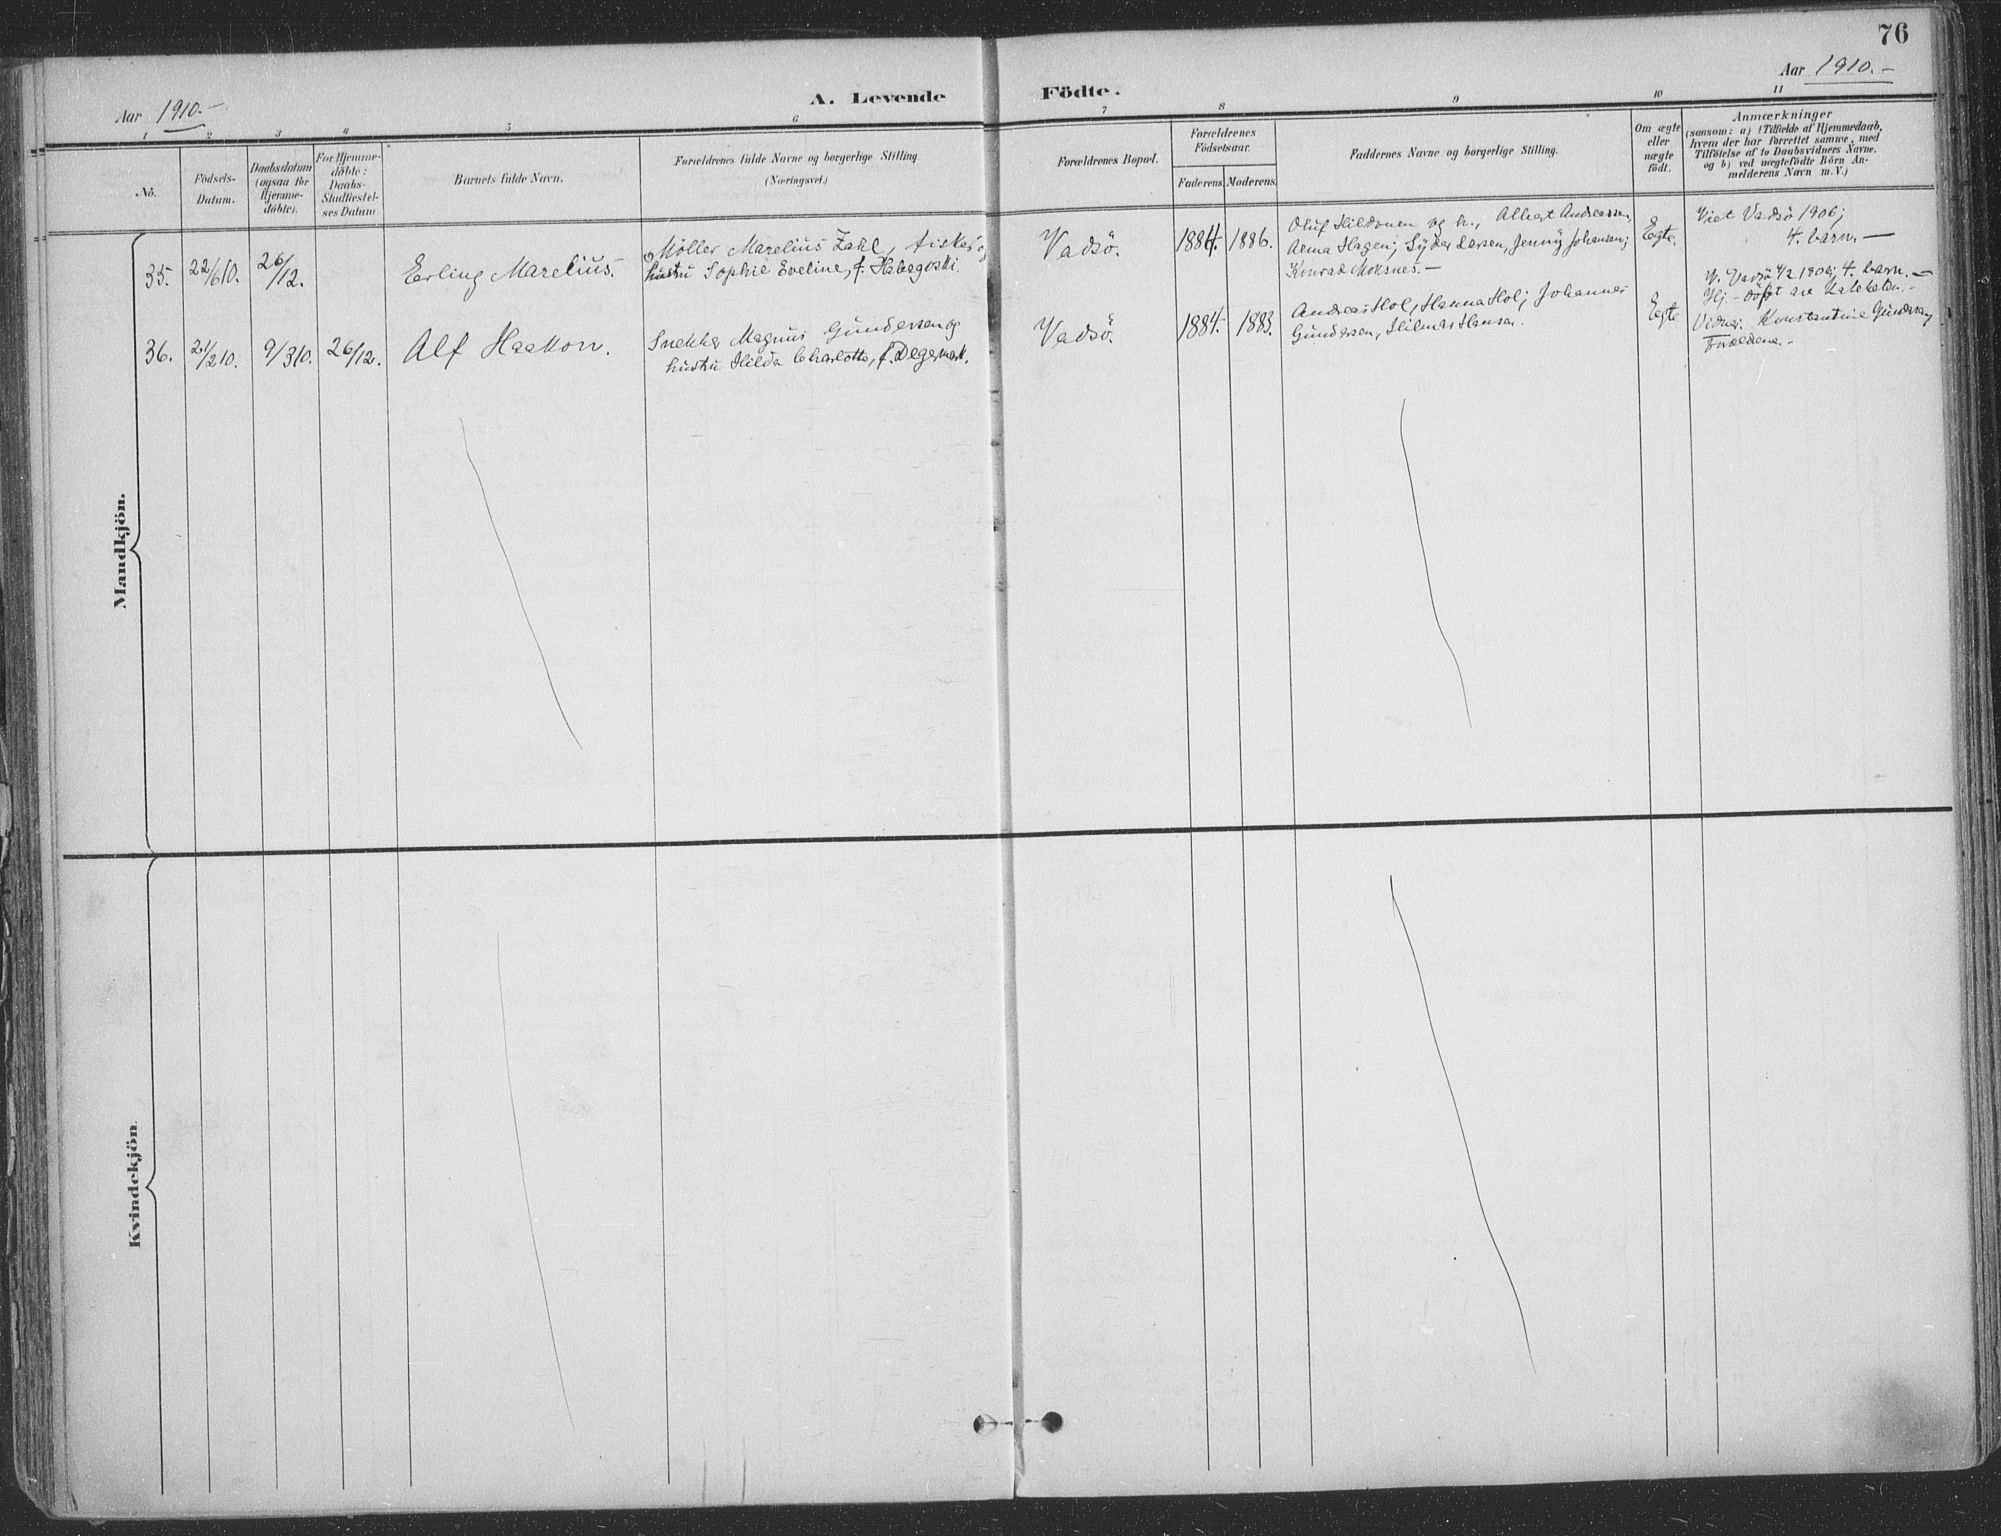 76
Aar 1910.-
A. Levende Födte.
Aar 1910.-
1 2 3 4 5 6 7 8 9 10 11
No.
Födsels-
Datum.
Daabsdatum
(ogsaa for
Hjemme-
döbte).
For Hjemme-
döbte:
Daabs-
Stadfæstel-
ses Datum
Barnets fulde Navn.
Forældrenes fulde Navne og borgerlige Stilling.
(Næringsvei.)
Forældrenes Bopæl.
Forældrenes
Födselsaar.
Faderens. Moderens.
Faddernes Navne og borgerlige Stilling.
Om ægte
eller
uægte
födt.
Anmærkninger
(saasom: a) i Tilfælde af Hjemmedaab,
hvem der har forrettet samme, med
Tilföielse af to Daabsvidners Navne.
og b) ved uægtefödte Börn An-
melderens Navn m.V.)
Mandkjön.
35. 22/610. 26/12. Erling Marelius.
Möller Marelius Zahl, fisker og
hustru Sophie Eveline, f. Habagoski.
Vadsö. 1884. 1886.
Oluf Hildonen og h., Albert Andreassen,
Anna Hagen; Syder Larsen, Jenny Johansen;
Konrad Moksnes.-
Egte.
Viet Vadsö 1906;
4. barn.-
36. 21/210. 9/310. 26/12. Alf Haakon.
Snekker Magnus Gundersen og
hustru Hilda Charlotte, f. Degermark.
Vadsö. 1884. 1883.
Andreas Hol, Hanna Hol; Johannes
Gundersen, Hilmar Hansen.
Egte
V. Vadsö 4/2 1906; 4. barn.-
Hj-döpt av Kateketen.-
Vidner: Konstantine Gundersen,
Forældrene.-
Kvindekjön